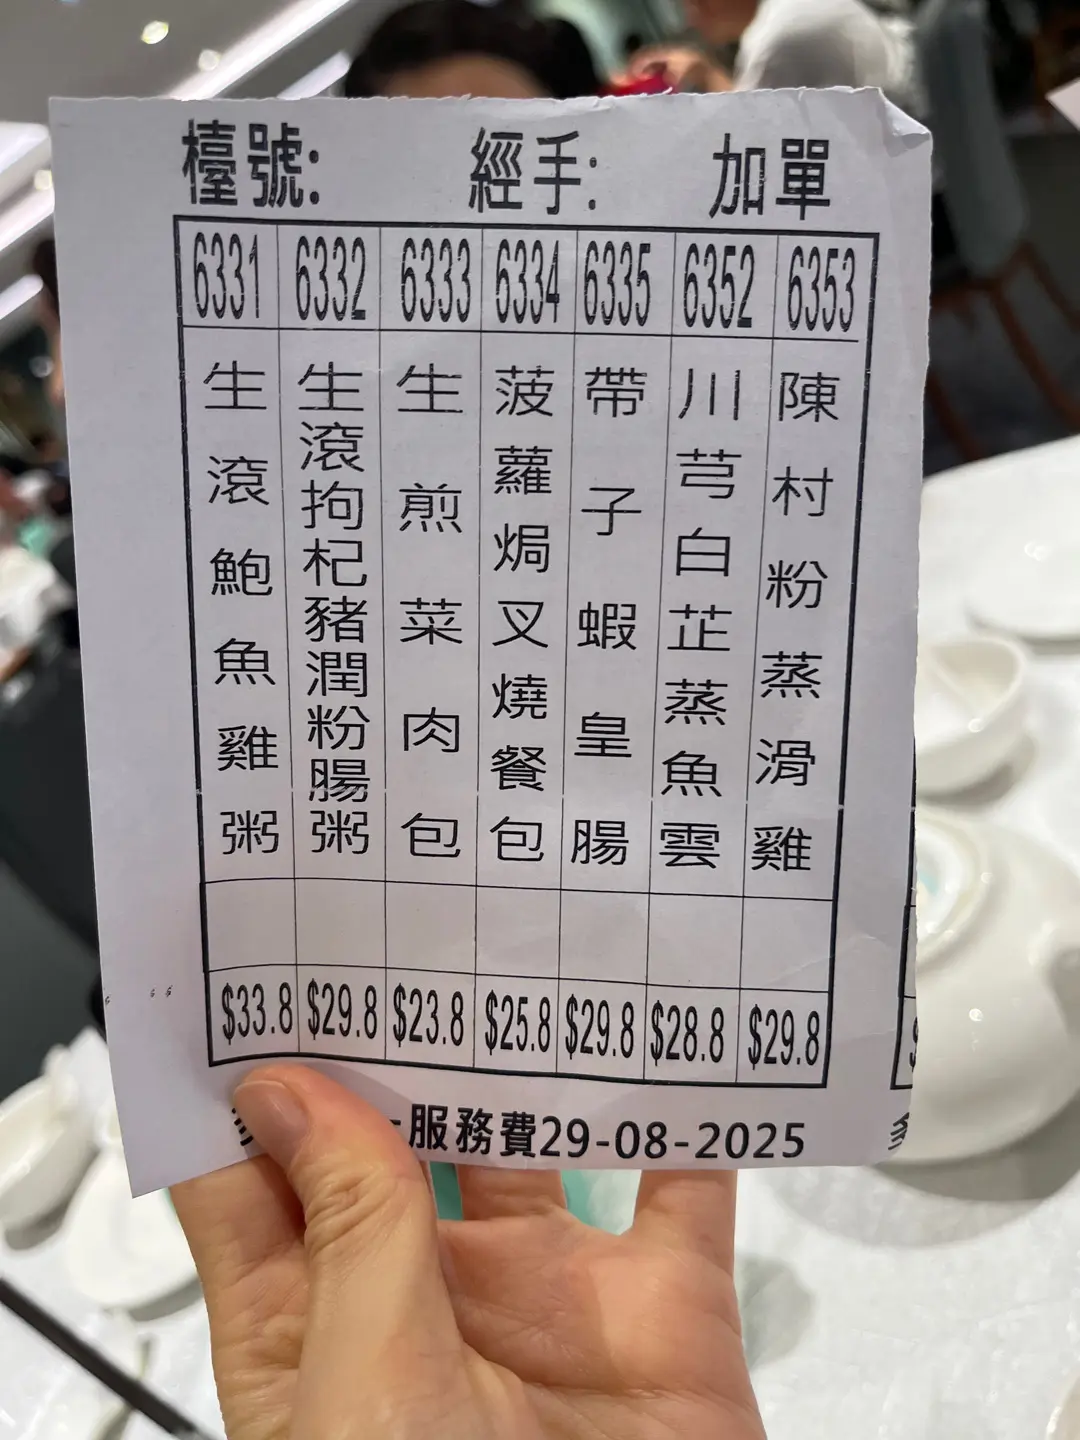 檯號: 經手: 加單
6331 6332 6333 6334 6335 6352 6353
生滾鮑魚雞粥
生滾枸杞豬潤粉腸粥
生煎菜肉包
菠蘿焗叉燒餐包
帶子蝦皇腸
川芎白芷蒸魚雲
陳村粉蒸滑雞
$33.8 $29.8 $23.8 $25.8 $29.8 $28.8 $29.8
服務費29-08-2025